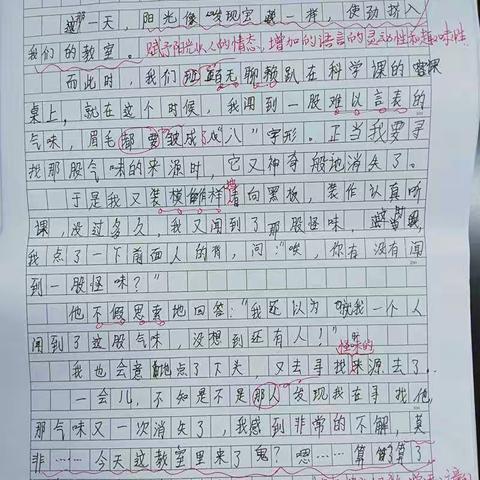 那一天，阳光像发现宝藏一样，使劲挤入
我们的教室。赋予阳光以人的情态，增加的语言的灵动性和趣味性
而此时，我们班百无聊赖趴在科学课的
桌上，就在这个时候，我闻到一股难以言表的
气味，眉毛都要皱成了"八"字形。正当我要寻
找那股气味的来源时，它又神奇般地消失了。
于是我又装模作样看向黑板，装作认真听
课，没过多久，我又闻到了那股怪味，
我点了一下前面人的背，问："唉，你有没有闻
到一股怪味？"
他不假思索地回答："我还以为就我一个人
闻到了这股气味，没想到还有人！"怪味的
我也会意地点了下头，又去寻找来源去了。
一会儿，不知是不是那人发现我在寻找他，
那气味又一次消失了，我感到非常的不解，莫
非……今天这教室里来了鬼？嗯……算了算了